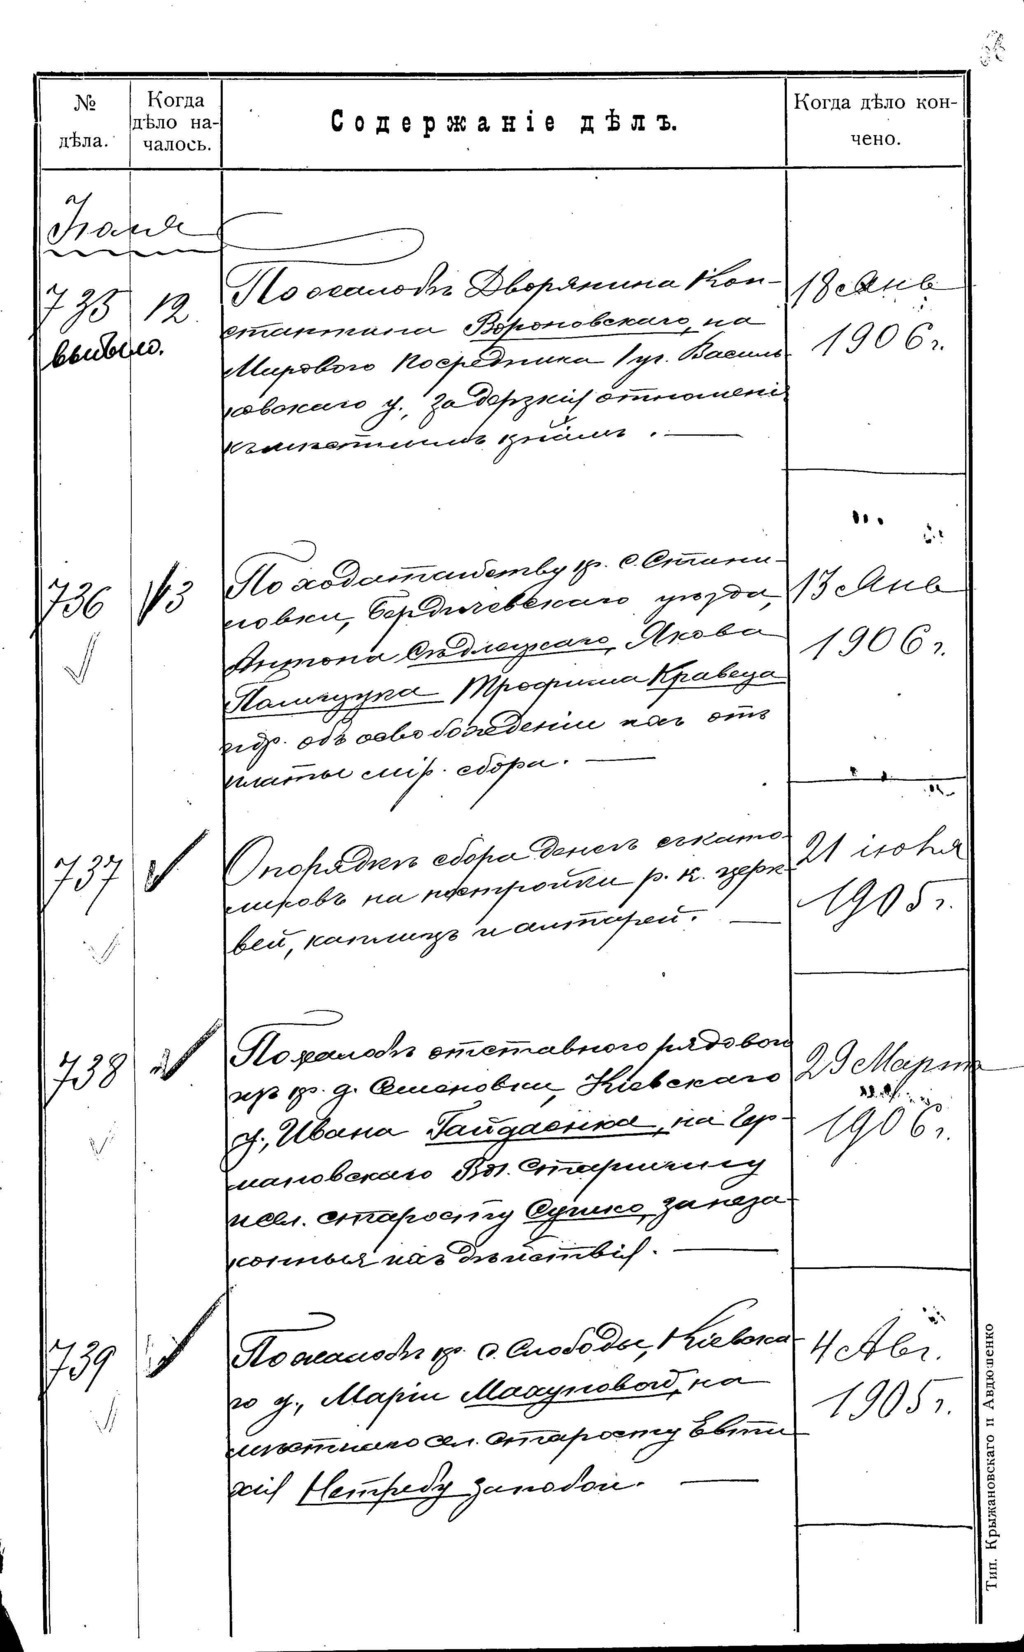 № дѣла.
Когда дѣло началось.
Содержаніе дѣлъ.
Когда дѣло кончено.
735 12
выбыло.
По жалобѣ Дворянина Кон-
стантина Вороновскаго, на
Мирового Посредника 1 уч. Василь-
ковскаго у., за дерзкія отношенія
къ мѣстнымъ
18 Янв
1906 г.
736 13
По ходатайству кр. с.
ловки, Бердичевскаго уѣзда,
Антона Сѣдлецкаго, Якова
Трофима Кравеца
и др. объ освобожденіи ихъ отъ
платы мір. сбора.
13 Янв
1906 г.
737
О порядкѣ сбора денегъ съ като-
ликовъ на постройки р. к. церк-
вей, каплицъ и алтарей.
21 іюня
1905 г.
738
По жалобѣ отставного рядового
изъ кр. д. Семеновки, Кіевскаго
у., Ивана Гайдаенка, на Гер-
мановскаго Вол. Старшину
и сел. старосту Сушко, за неза-
конныя ихъ дѣйствія.
29 Март
1906 г.
739
По жалобѣ кр. с. Слободы, Кіевска-
го у., Маріи на
мѣстнаго сел. старосту Евти-
хія Нетребу за побои.
4 Авг.
1905 г.
Тип. Крыжановскаго и Авдюшенко